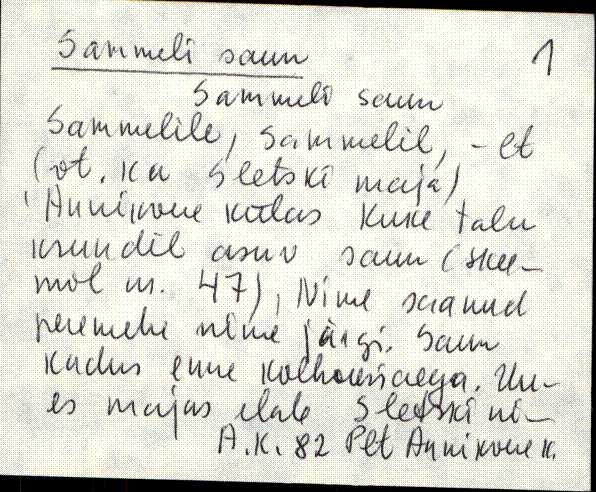 Sammeli saun 1
Sammeli saun
Sammelile, Sammelil, -et
(vt. ka Sletski maja)
Annikvere külas Kuke talu
krundil asuv saun (skee-
mil nr. 47), Nime saanud
peremehe nime järgi. Saun
kadus enne kolhoosiaega. Uu-
es majas elab Sletski ni-
A.K. 82 Plt Annikvere k.